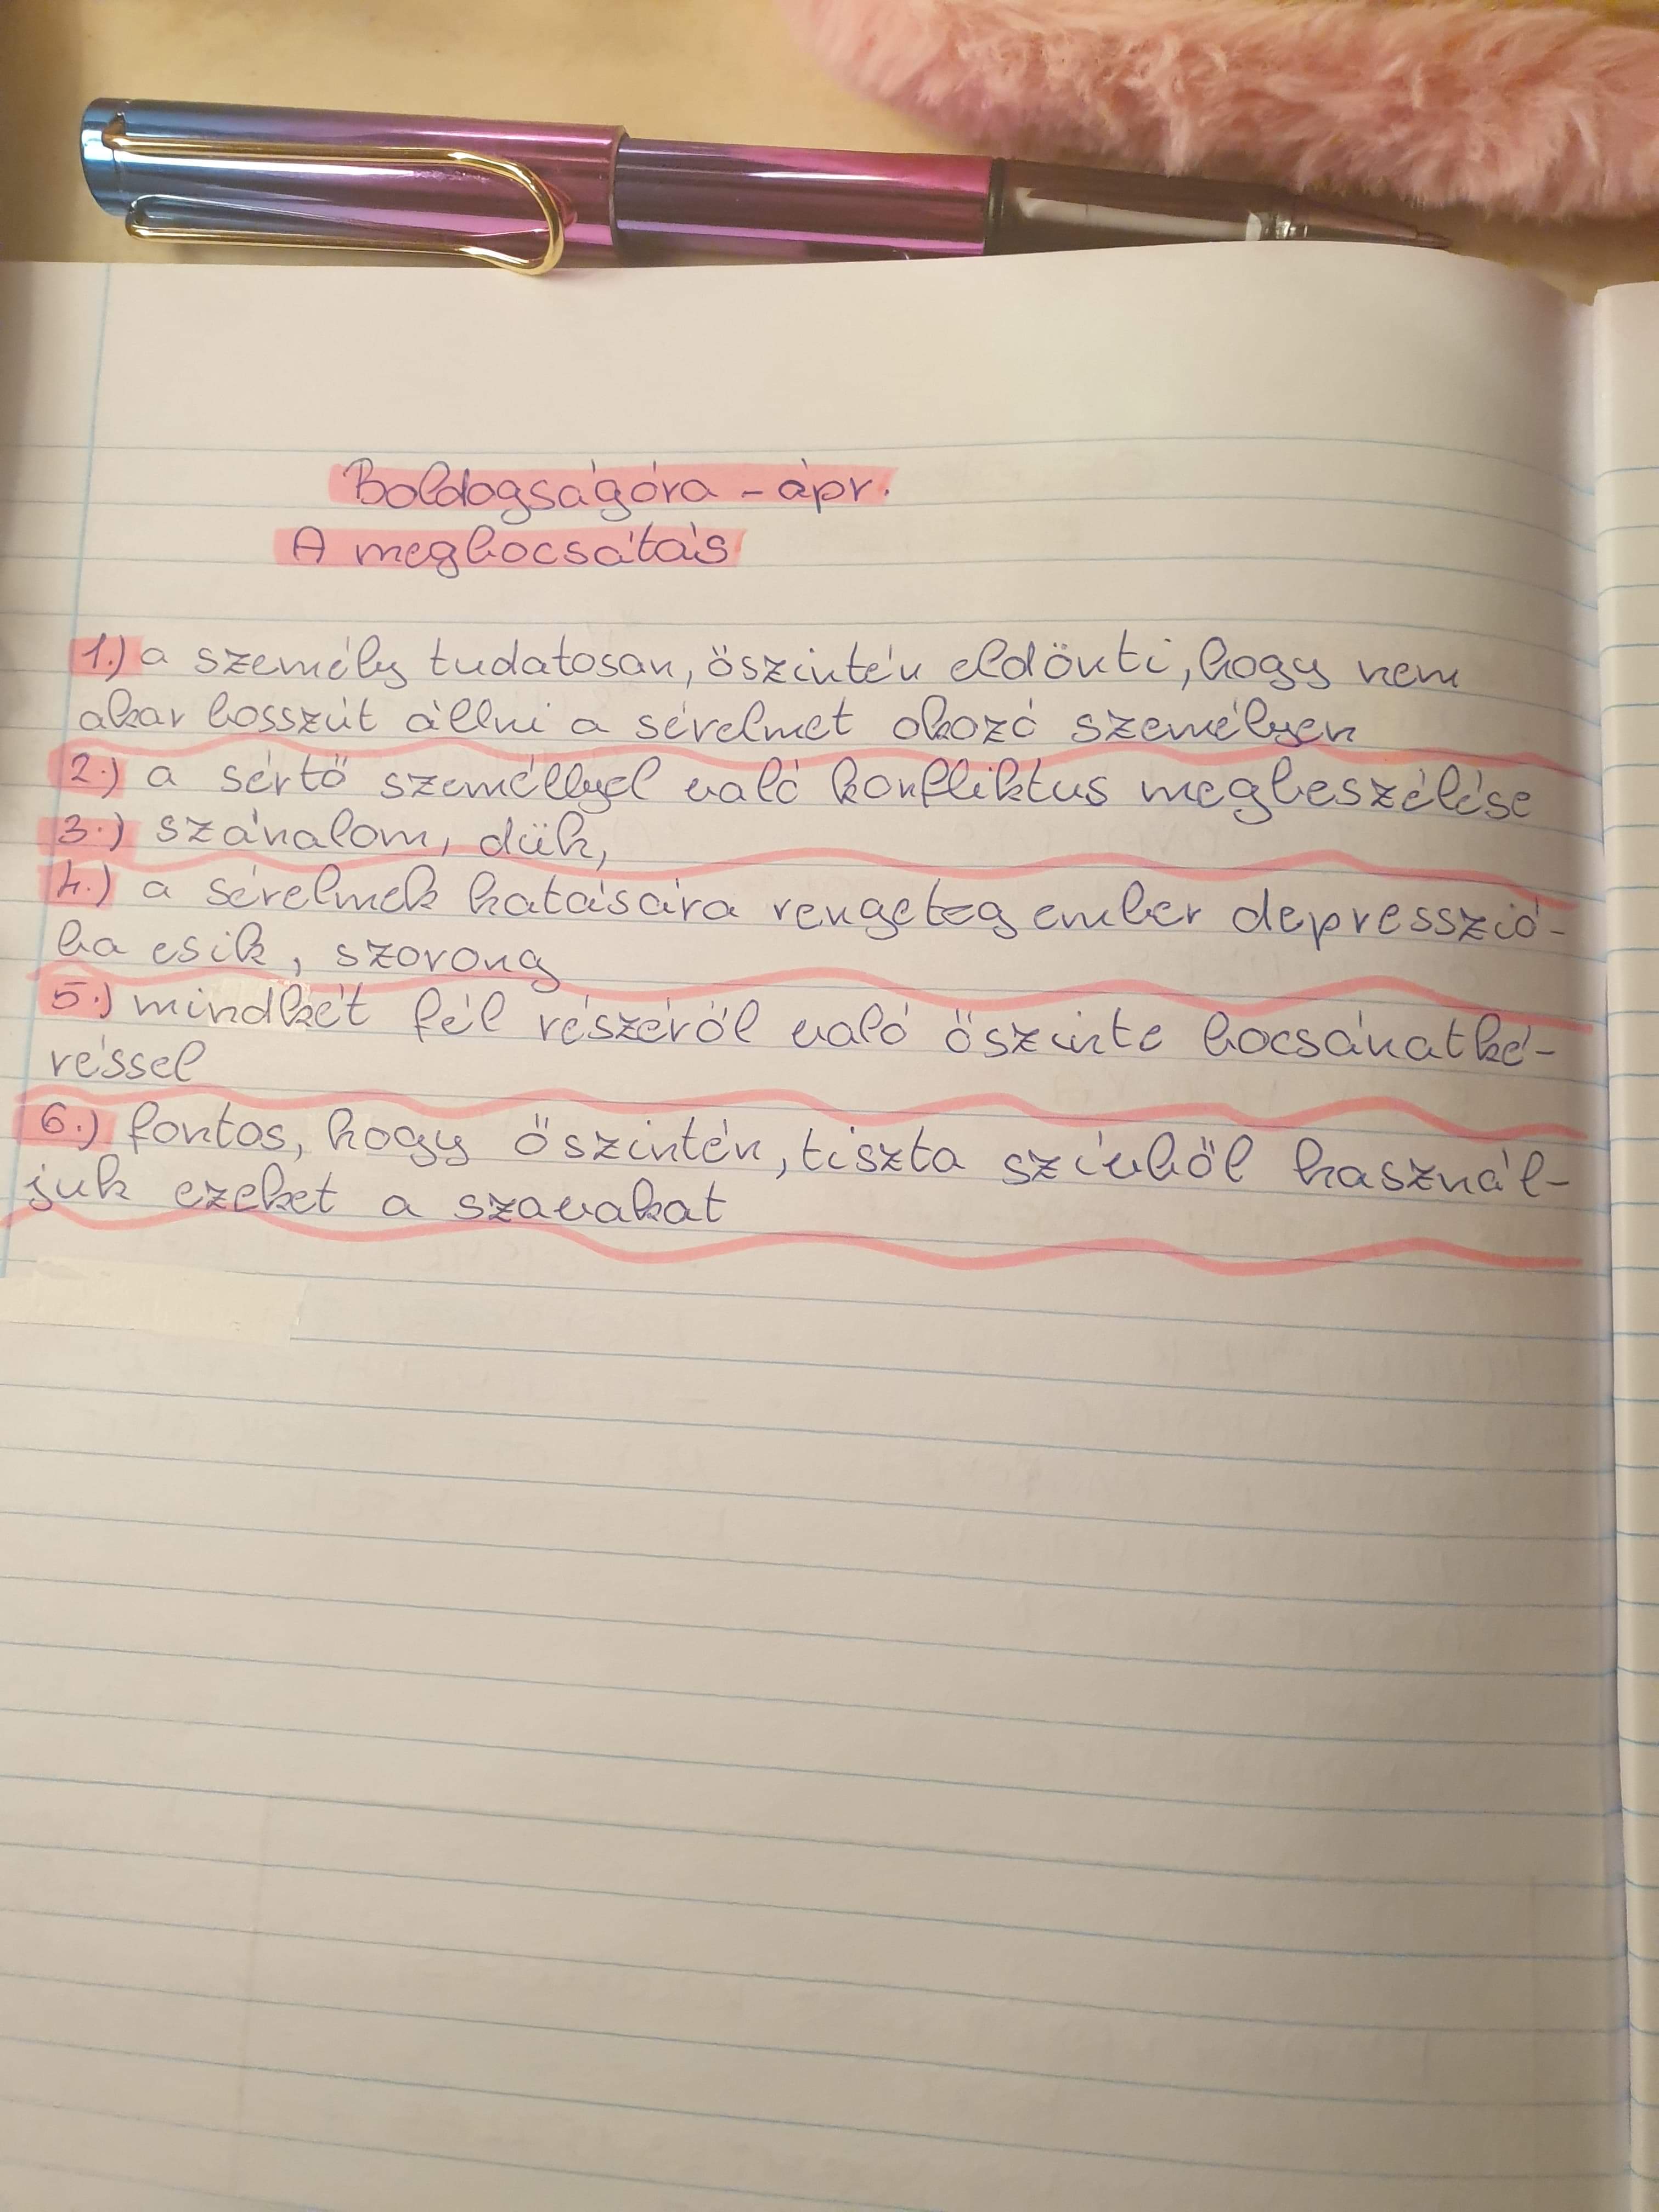 Boldogságóra - ápr.
A megbocsátás
1.) a személy tudatosan, őszintén eldönti, hogy nem
akar bosszút állni a sérelmet okozó személyen
2.) a sértő személlyel való konfliktus megbeszélése
3.) szánalom, dük,
4.) a sérelmek hatására rengeteg ember depresszió-
ba esik, szorong
5.) mindkét fél részéről való őszinte bocsánatké-
réssel
6.) fontos, hogy őszintén, tiszta szívből használ-
juk ezeket a szavakat